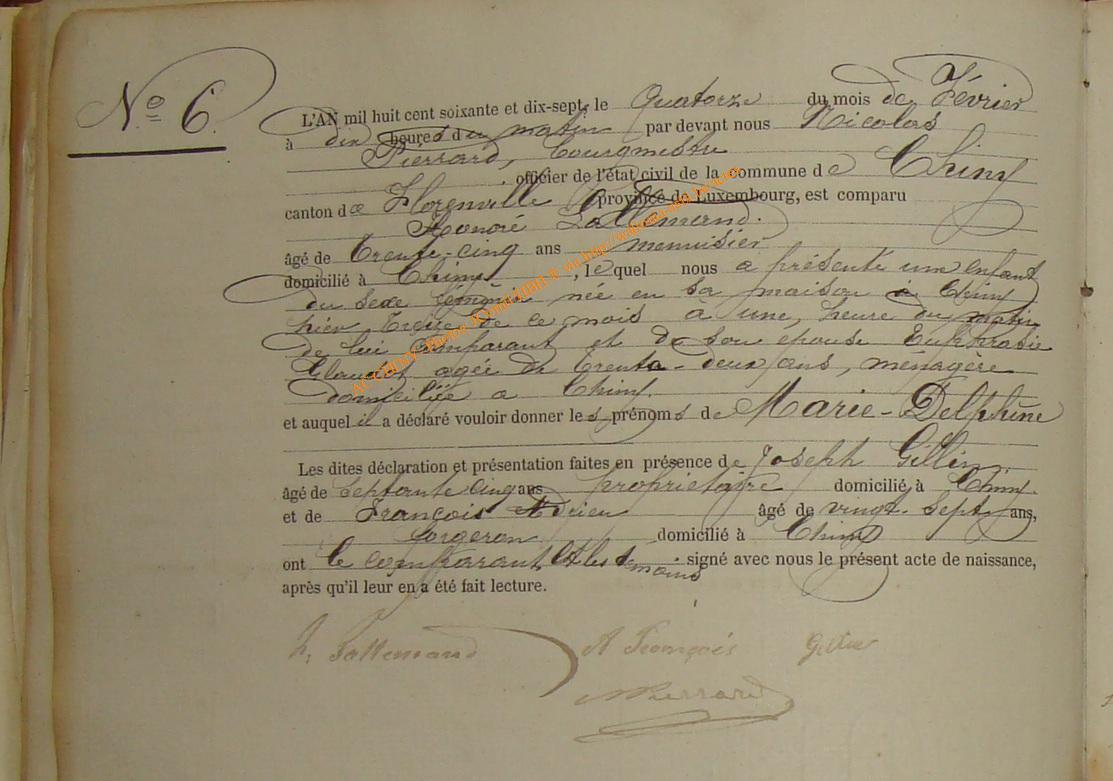 N.º 6.
L'AN mil huit cent soixante et dix-sept, le Quatorze du mois de Février
à dix heures du matin par devant nous Nicolas
Pierrard, bourgmestre
officier de l'état civil de la commune de Chiny
canton de Florenville province de Luxembourg, est comparu
Honoré Lallemand.
âgé de Trente-cinq ans menuisier
domicilié à Chiny, lequel nous a présenté une enfant
du sexe féminin née en sa maison à Chiny
hier treize de ce mois à une, heure du matin
de lui comparant et de son épouse Euphrasie
Claudot agée de trente-deux ans, ménagère
domiciliée a Chiny.
et auquel il a déclaré vouloir donner les prénoms de Marie-Delphine
Les dites déclaration et présentation faites en présence de Joseph Gillin
âgé de septante cinq ans propriétaire domicilié à Chiny.
et de François Adrien âgé de vingt-sept ans,
forgeron domicilié à Chiny
ont le comparant et les témoins signé avec nous le présent acte de naissance,
après qu'il leur en a été fait lecture.
h, Lallemand A François Gillin
Pierrard